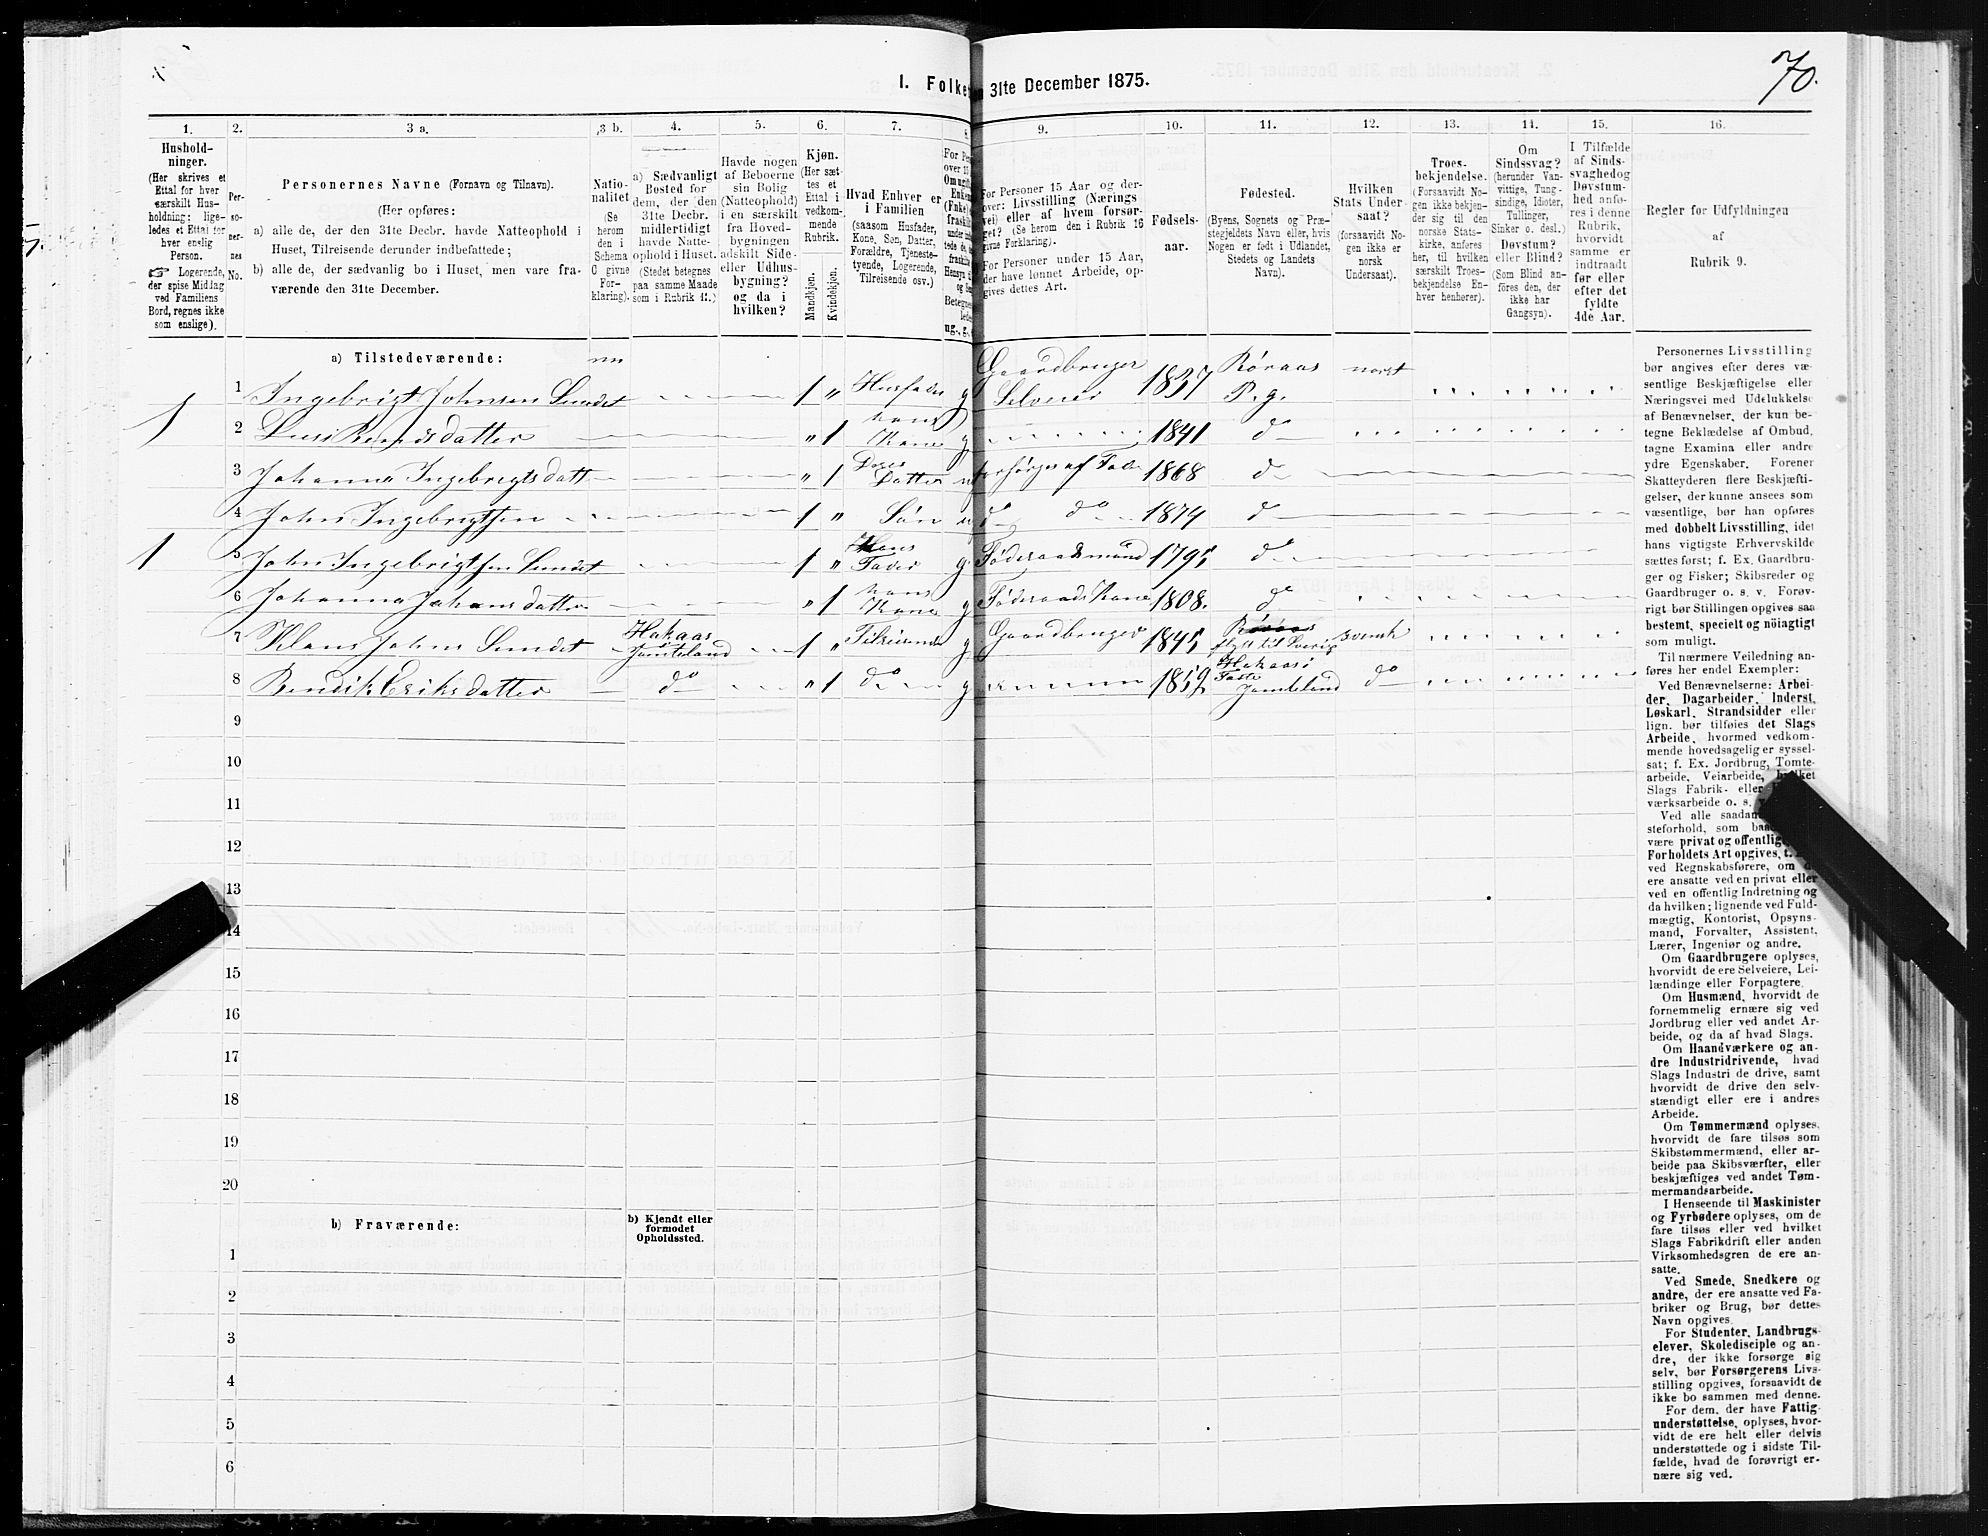 70.
I. Folke
31te December 1875.
1. 2. 3 a. 3 b. 4. 5. 6. 7. 8. 9. 10. 11. 12. 13. 14. 15. 16.
Hushold-
ninger.
(Her skrives et
Ettal for hver
særskilt Hus-
holdning; lige-
ledes et Ettal for
hver enslig
Person.
☞ Logerende,
der spise Middag
ved Familiens
Bord, regnes ikke
som enslige).
Per-
so-
ner-
nes
No.
Personernes Navne (Fornavn og Tilnavn).
(Her opføres:
a) alle de, der den 31te Decbr. havde Natteophold i
Huset, Tilreisende derunder indbefattede;
b) alle de, der sædvanlig bo i Huset, men vare fra-
værende den 31te December.
Natio-
nalitet
(Se
herom
den i
Schema
C givne
For-
klaring).
a) Sædvanligt
Bosted for
dem, der den
31te Decbr.
midlertidigt
havde Natte-
ophold i Huset.
(Stedet betegnes
paa samme Maade
som i Rubrik 11.)
Havde nogen
af Beboerne
sin Bolig
(Natteophold)
i en særskilt
fra Hoved-
bygningen
adskilt Side-
eller Udhus-
bygning?
og da i
hvilken?
Kjøn.
(Her sæt-
tes et
Ettal i
vedkom-
mende
Rubrik.
Mandkjøn.
Kvindekjøn.
Hvad Enhver er
i Familien
(saasom Husfader,
Kone, Søn, Datter,
Forældre, Tjeneste-
tyende, Logerende,
Tilreisende osv.)
For Personer 15 Aar og der-
over: Livsstilling (Nærings-
vei) eller af hvem forsør-
get? (Se herom i Rubrik 16
givne Forklaring).
For Personer under 15 Aar,
der have lønnet Arbeide, op-
gives dettes Art.
Fødsels-
aar.
Fødested.
(Byens, Sognets og Præ-
stegjeldets Navn eller, hvis
Nogen er født i Udlandet,
Stedets og Landets
Navn).
Hvilken
Stats Under-
saat?
(forsaavidt No-
gen ikke er
norsk
Undersaat).
Troes-
bekjendelse.
(Forsaavidt No-
gen ikke bekjen-
der sig til den
norske Stats-
kirke, anføres
her, til hvilken
særskilt Troes-
bekjendelse En-
hver henhører).
Om
Sindssvag?
(herunder Van-
vittige, Tung-
sindige, Idioter,
Tullinger,
Sinker o. desl.)
Døvstum?
eller Blind?
(Som Blind an-
føres den, der
ikke har
Gangsyn).
I Tilfælde
af Sinds-
svaghed og
Døvstum-
hed anfø-
res i denne
Rubrik,
hvorvidt
samme er
indtraadt
før eller
efter det
fyldte
4de Aar.
Regler for Udfyldningen
af
Rubrik 9.
a) Tilstedeværende:
1 Ingebrigt Johnsen Sundet 1 " Husfader g Gaardbruger Selveier 1837 Røraas P.g. norsk
2 Datter " 1 hans Kone g 1841 do
3 Johanna Ingebrigtsdatt " 1 Deres Datter forsørges af Fader 1868 do
4 John Ingebrigtsen 1 " Søn do do 1874 do
5 John Ingebrigtsen Sundet 1 " Hans Fader g Føderaadsmand 1795 do
6 Johanna Johansdatter " 1 hans Kone g Føderaads Kone 1808. do
7 Klaus Johns Sundet Hakaas Jæmteland 1 " Tilreisende g Gaardbruger 1845 Røraas flyt til Sverig svensk
8 Eriksdatter do " 1 do g 1852 Hakaas Jæmteland do
9
10
11
12
13
14
15
16
17
18
19
20
b) Fraværende:
b) Kjendt eller
formodet
Opholdssted.
1
2
3
4
5
6
Personernes Livsstilling
bør angives efter deres væ-
sentlige Beskjæftigelse eller
Næringsvei med Udelukkelse
af Benævnelser, der kun be-
tegne Beklædelse af Ombud,
tagne Examina eller andre
ydre Egenskaber. Forener
Skatteyderen flere Beskjæfti-
gelser, der kunne ansees som
væsentlige, bør han opføres
med dobbelt Livsstilling, idet
hans vigtigste Erhvervskilde
sættes først; f. Ex. Gaardbru-
ger og Fisker; Skibsreder og
Gaardbruger o. s. v. Forøv-
rigt bør Stillingen opgives saa
bestemt, specielt og nöiagtigt
som muligt.
Til nærmere Veiledning an-
føres her endel Exempler:
Ved Benævnelserne: Arbei-
der, Dagarbeider, Inderst,
Løskarl, Strandsidder eller
lign. bør tilføies det Slags
Arbeide, hvormed vedkom-
mende hovedsagelig er syssel-
sat; f. Ex. Jordbrug, Tomte-
arbeide, Veiarbeide, hvilket
Slags Fabrik- eller
værksarbeide o. s.
Ved alle saadan
steforhold, som
være privat og offentlig
Forholdets Art opgives,
ved Regnskabsførere, om
ere ansatte ved en privat eller
ved en offentlig Indretning og
da hvilken; lignende ved Fuld-
mægtig, Kontorist, Opsyns-
mand, Forvalter, Assistent,
Lærer, Ingeniør og andre.
Om Gaardbrugere oplyses,
hvorvidt de ere Selveiere, Lei-
lændinge eller Forpagtere.
Om Husmænd, hvorvidt de
fornemmelig ernære sig ved
Jordbrug eller ved andet Ar-
beide, og da af hvad Slags.
Om Haandværkere og an-
dre Industridrivende, hvad
Slags Industri de drive, samt
hvorvidt de drive den selv-
stændigt eller ere i andres
Arbeide.
Om Tømmermænd oplyses,
hvorvidt de fare tilsøs som
Skibstømmermænd, eller ar-
beide paa Skibsværfter, eller
beskjæftiges ved andet Tøm-
mermandsarbeide.
I Henseende til Maskinister
og Fyrbødere oplyses, om de
fare tilsøs eller ved hvilket
Slags Fabrikdrift eller anden
Virksomhedsgren de ere an-
satte.
Ved Smede, Snedkere og
andre, der ere ansatte ved Fa-
briker og Brug, bør dettes
Navn opgives.
For Studenter, Landbrugs-
elever, Skoledisciple og an-
dre, der ikke forsørge sig
selv, bør Forsørgerens Livs-
stilling opgives, forsaavidt de
ikke bo sammen med denne.
For dem, der have Fattig-
understøttelse, oplyses, hvor-
vidt de ere helt eller delvis
understøttede og i sidste Til-
fælde, hvad de forøvrigt er-
nære sig ved.